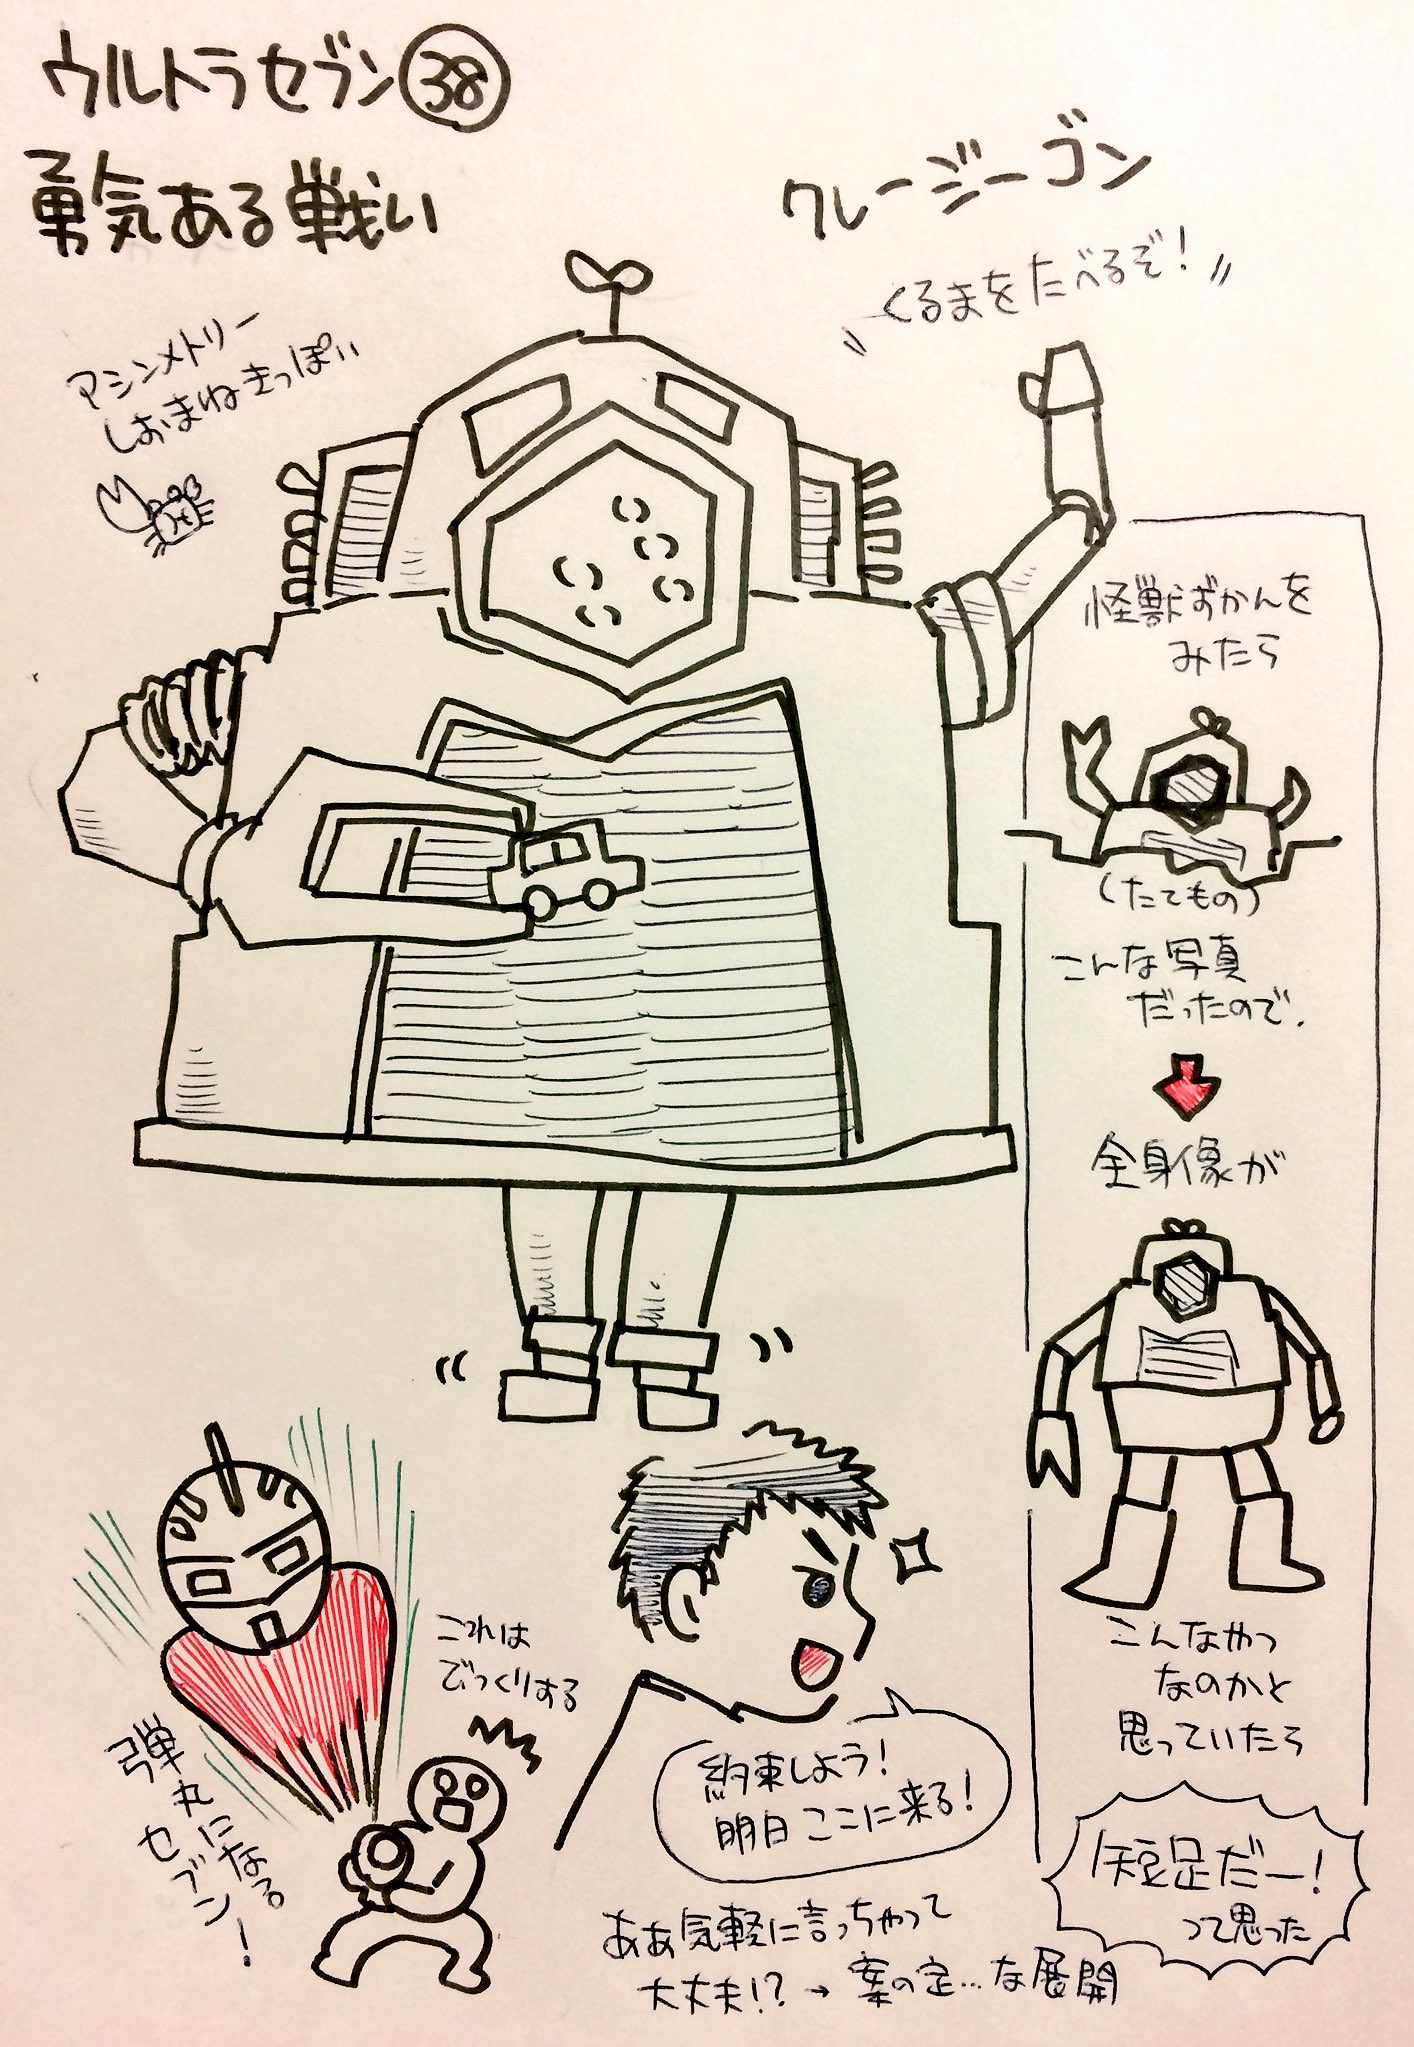 ウルトラセブン㊳
勇気ある戦い
クレージーゴン
"くるまをたべるぞ!"
アシンメトリー
しおまねきっぽい
怪獣ずかんを
みたら
(たてもの)
こんな写真
だったので、
全身像が
こんなやつ
なのかと
思っていたら
短足だー!
って思った
これは
びっくりする
弾丸になる
セブン!
約束しよう!
明日ここに来る!
ああ気軽に言っちゃって
大丈夫!?→案の定…な展開